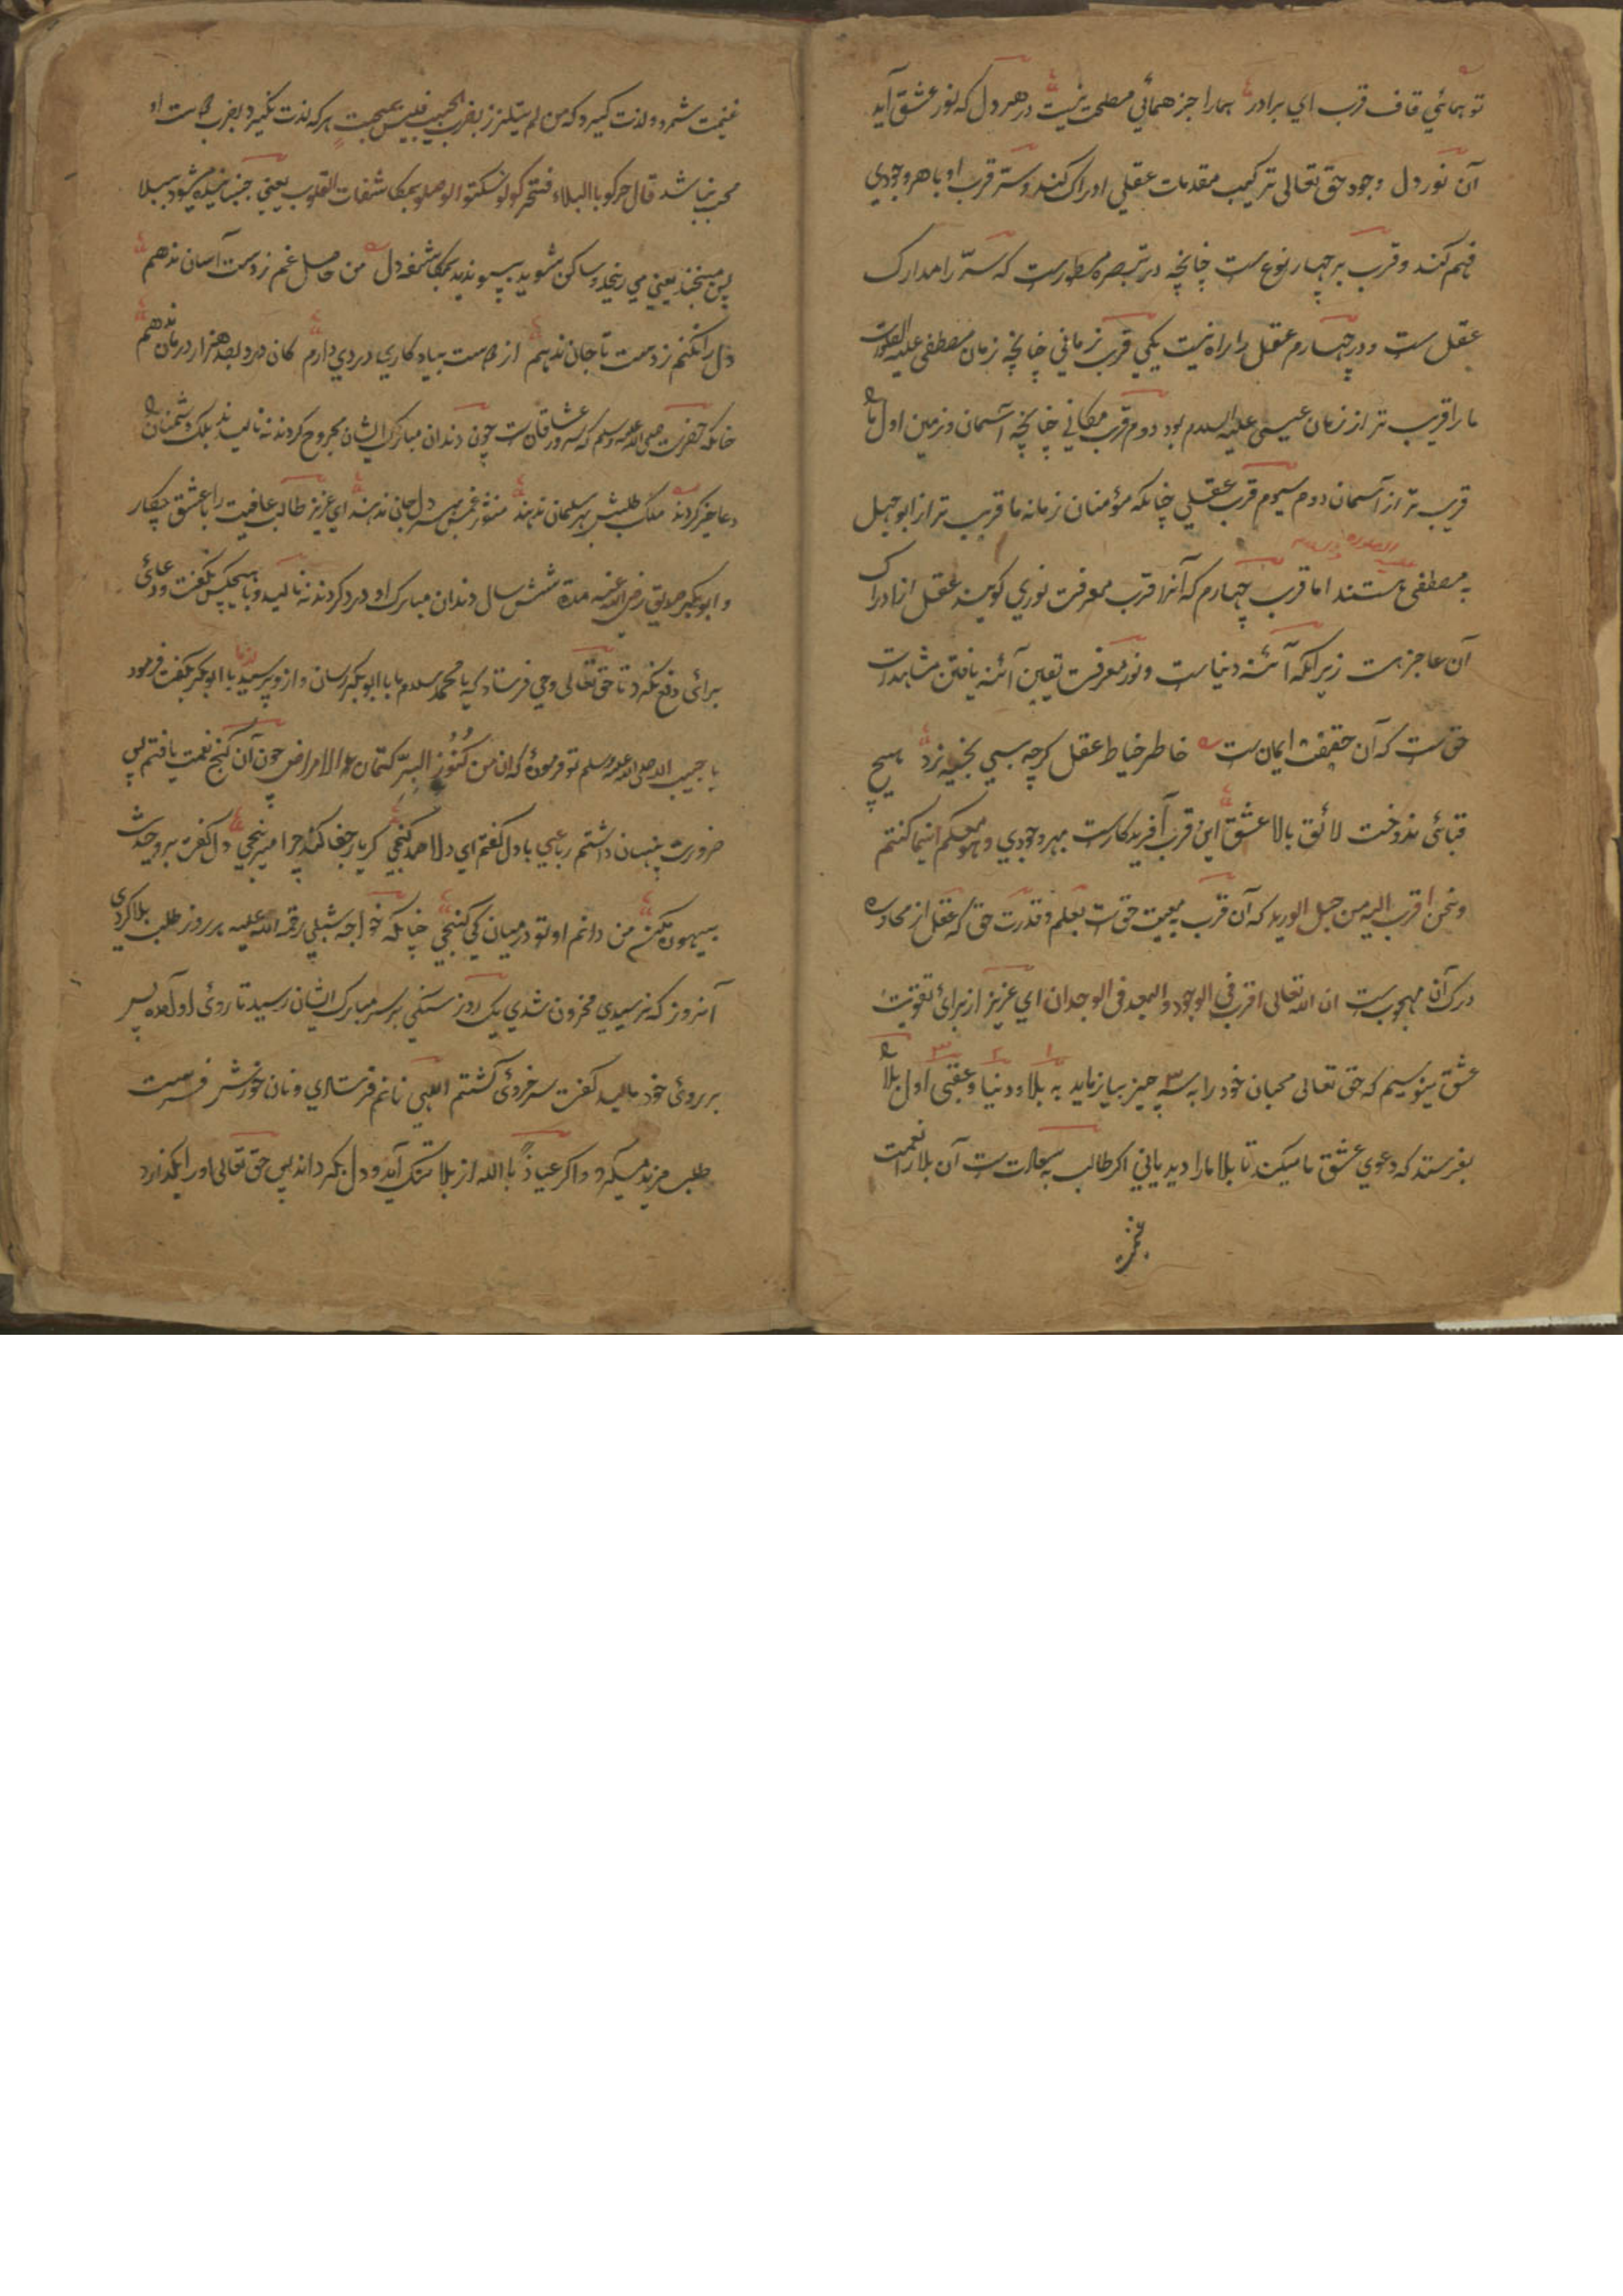 تو همائي قاف قرب اي برادر همارا جز همائي مصلحت نيست در هر دل كه نور عشق آيد
آن نور دل وجود حق تعالى تركيب مقدمات عقلي ادراك كند و سر قرب او با هر وجودي
فهم كند و قرب بر چهار نوع ست چنانچه در تبصره مسطورست كه سه را مدارك
عقل ست و در چهارم عقل را راه نيست يكي قرب زماني چنانچه زمان مصطفى عليه الصلوت
ما را قريب تر از زمان عيسى عليه السلام بود دوم قرب مكاني چنانچه آسمان و زمين اول با
قريب تر از آسمان دوم سيوم قرب عقلي چنانكه مؤمنان زمانه ما قريب تر از ابو جهل
عليه الصلوة والسلام
به مصطفى هستند اما قرب چهارم كه آنرا قرب معرفت نوري كويند عقل از ادراك
آن عاجزست زيرانكه آئنه دنياست و نور معرفت يقين آئنه يافتن مشاهدات
حق ست كه آن حقيقت ايمان ست خاطر خياط عقل كرچه بسي بخيه زد هيچ
قبائى ندوخت لائق بالا عشق اين قرب آفريدكارست بهر وجودي و هو معكم اينما كنتم
و نحن اقرب اليه من حبل الوريد كه آن قرب به معيت حق ست بعلم و قدرت حق كه عقل از
درك آن مهجوب ست ان الله تعالى اقرب في الوجود والبعد فى الوجدان اي عزيز از براى تقويت
۱ ۲ ۳
عشق مينويسم كه حق تعالى محبان خود را به سه چيز بيازمايد به بلا و دنيا و عقبى اول بلا
بفرستد كه دعوي عشق ما ميكند تا بلا ما را ديد ياني اكر طالب به سعادت ست آن بلا را نعمت
غنيمت شمرد و لذت كيرد كه من لم يتلذز بضرب الحبيب فليس بمحب هر كه لذت نكيرد بضرب دوست او
محب نباشد قال حركو با البلاء فتحركو لو سكنتو الوصلو بمكاشفات القلوب يعني جنبانيده ميشود ببلا
پس ميجنبد يعني مي رنجد و ساكن شويد بپيونديد بمكاشفه دل من حاصل غم ز دست آسان ندهم
دل را نكنم ز دست تا جان ندهم از دوست بيادكاري دردي دارم كان درد بصد هزار درمان ندهم
چنانكه حضرت صلى الله عليه وسلم كه سرور عاشقان ست چون دندان مبارك ايشان مجروح كردند نه ناليدند بلكه دشمنان
دعا خير كردند ملك طلبش بهر سليمان ندهند منشور غمش بهر دل جاني ندهند اي عزيز طالب عافيت را با عشق چكار
و ابوبكر صديق رضي الله عنه مدة شش سال دندان مبارك او درد كردند نه ناليد و با هيچكس نكفت و دعائى
براى دفع نكرد تا حق تعالى وحي فرستاد كه يا محمد سلام ما با ابوبكر رسان و از و پرسيد يا ابوبكر نكفت فرمود
يا حبيب الله صلى الله عليه وسلم تو فرمودۀ كه ان من كنوز البر كتمان الامراض چون آن كنج نعمت يافتم پس
ضرورت پنهان داشتم رباعي با دل كفتم اي دلا كنجي كر يار جفا كند چرا ميرنجي دل كفت برو حديث
بيهوده مكن من دانم او تو در ميان كي كنجي چنانكه خواجه شبلي رحمة الله عليه هر روز طلب بلا كردي
آنروز كه نرسيدي محزون شدي يك روز سنكي بر سر مبارك ايشان رسيد تا روئ او آمده پس
بر روئ خود ماليد كفت سرخروئ كشتم الهي نانم فرستادي و نان خورش فرست
طلب مزيد ميكرد و اكر عياذ با الله از بلا تنك آيد و دل بكرداند پس حق تعالى او را بكذارد